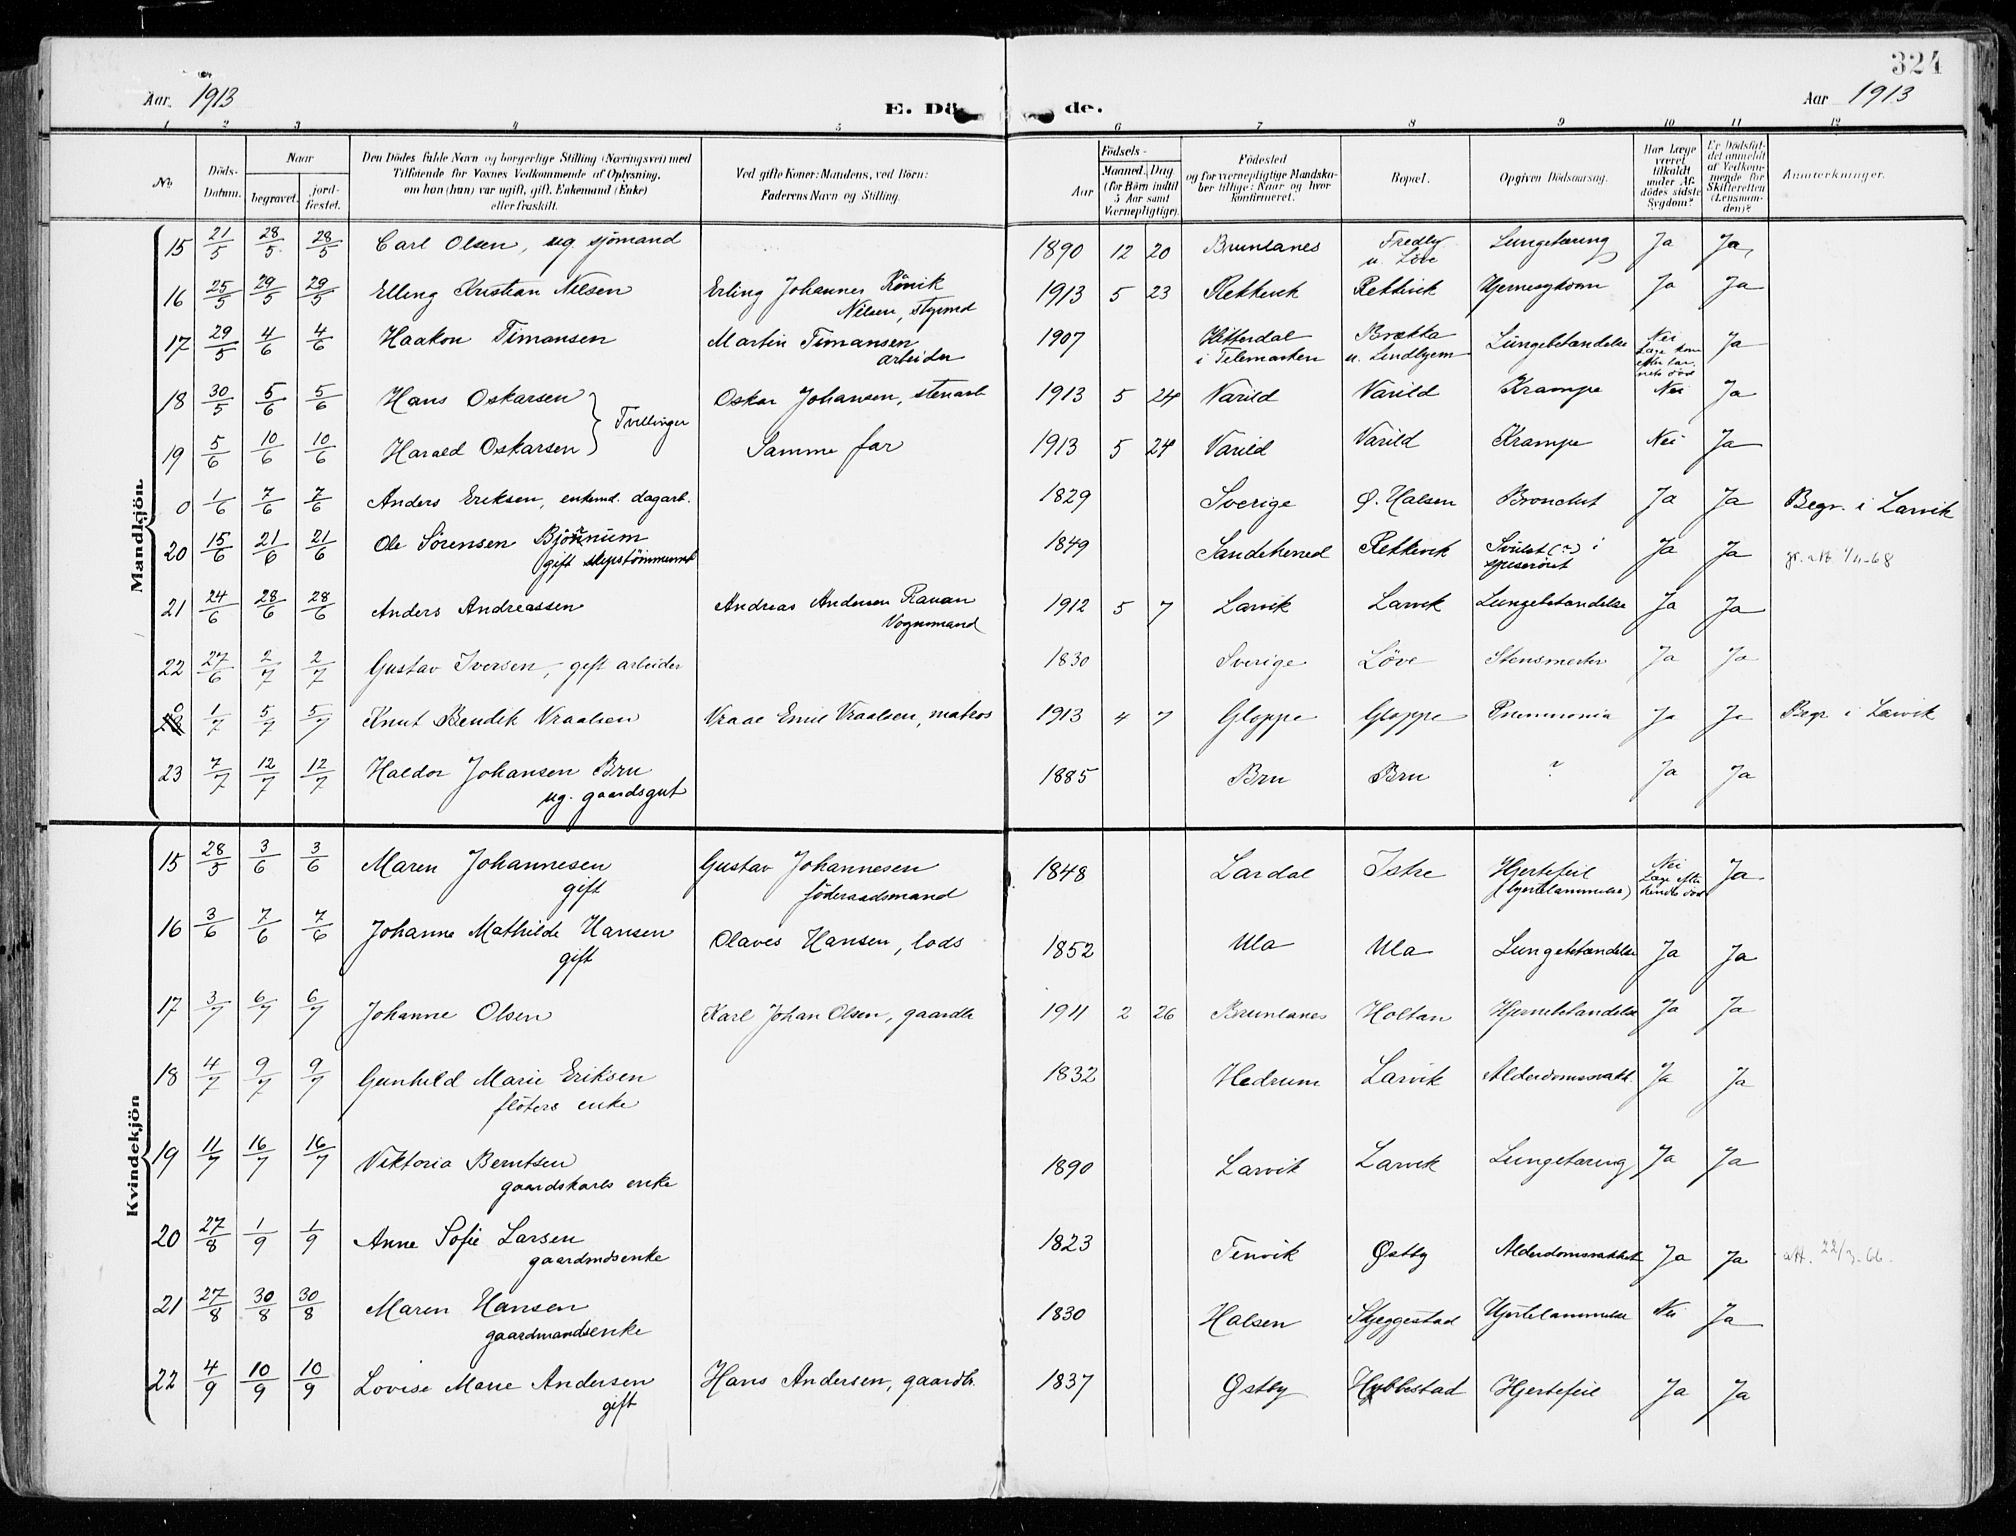 324
Aar. 1913 E. Dö de. Aar 1913
1 2 3 4 5 6 7 8 9 10 11 12
No. Döds-Datum. Naar begravet. jord-fæstet. Den Dödes fulde Navn og borgerlige Stilling (Næringsvei) med Tilföiende for Voxnes Vedkommende af Oplysning, om han (hun) var ugift, gift, Enkemand (Enke) eller fraskilt. Ved gifte Koner: Mandens, ved Börn: Faderens Navn og Stilling. Födsels- Aar Maaned. Dag (for Börn indtil 5 Aar samt Værnepligtige). Födested og for værnepligtige Mandskaber tillige: Naar og hvor konfirmeret. Bopæl. Opgiven Dödsaarsag. Har Læge været tilkaldt under Afdödes sidste Sygdom? Er Dödsfaldet anmeldt af Vedkommende for Skifteretten (Lensmanden)? Anmærkninger.
Mandkjön.
15 21/5 28/5 28/5 Carl Olsen, ug sjömand 1890 12 20 Brunlanes Fredly u. Löve Lungetæring Ja Ja
16 25/5 29/5 29/5 Elling Kristian Nilsen Erling Johannes Rönik Nilsen, styrmd 1913 5 23 Rekkevik Rekkevik Hjernesykdom Ja Ja
17 29/5 4/6 4/6 Haakon Timansen Martin Timansen arbeider 1907 Hitterdal i Telemarken Brækka u. Lindhjem Lungebetændelse Nei Læge kom efter barnets död Ja
18 30/5 5/6 5/6 Hans Oskarsen } Tvillinger Oskar Johansen, stenarb 1913 5 24 Varild Varild Krampe Nei Ja
19 5/6 10/6 10/6 Harald Oskarsen Samme far 1913 5 24 Varild Varild Krampe Nei Ja
0 1/6 7/6 7/6 Anders Eriksen, enkemd. dagarb. 1829 Sverige Ø. Halsen Bronchit Ja Ja Begr. i Larvik
20 15/6 21/6 21/6 Ole Sörensen Bjönnum gift skipstömmermd 1849 Sandeherred Rekkevik Svulst (?) i spiseröret Ja Ja
21 24/6 28/6 28/6 Anders Andreassen Andreas Andersen Rauan Vognmand 1912 5 7 Larvik Larvik Lungebetændelse Ja Ja
22 27/6 2/7 2/7 Gustav Iversen, gift arbeider 1830 Sverige Löve Stensmerter Ja Ja
0 1/7 5/7 5/7 Knut Bendik Vraalsen Vraae Emil Vraalsen, matros 1913 4 7 Gloppe Gloppe Pneumonia Ja Ja Begr i Larvik
23 7/7 12/7 12/7 Haldor Johansen Bru ug. gaardsgut 1885 Bru Bru ? Ja Ja
Kvindekjön
15 28/5 3/6 3/6 Maren Johannesen gift Gustav Johannesen föderaadsmand 1848 Lardal Istre Hjertefeil (hjertelammelse) Nei Læge efter hendes död Ja
16 3/6 7/6 7/6 Johanne Mathilde Hansen gift Olaves Hansen, lods 1852 Ula Ula Lungebetændelse Ja Ja
17 3/7 6/7 6/7 Johanne Olsen Karl Johan Olsen, gaardbr 1911 2 26 Brunlanes Holtan Hjernebetændelse Ja Ja
18 4/7 9/7 9/7 Gunhild Marie Eriksen flöters enke 1832 Hedrum Larvik Alderdomssvakh. Ja Ja
19 11/7 16/7 16/7 Viktoria Berntsen gaardskarls enke 1890 Larvik Larvik Lungetæring Ja Ja
20 27/8 1/9 1/9 Anne Sofie Larsen gaardmdsenke 1823 Tenvik Østby Alderdomssvakhet Ja Ja att. 22/3-66.
21 27/8 30/8 30/8 Maren Hansen gaardmandsenke 1830 Halsen Skjeggestad Hjertelammelse Nei Ja
22 4/9 10/9 10/9 Lovise Marie Andersen gift Hans Andersen, gaardbr. 1837 Østby Hybbestad Hjertefeil Ja Ja